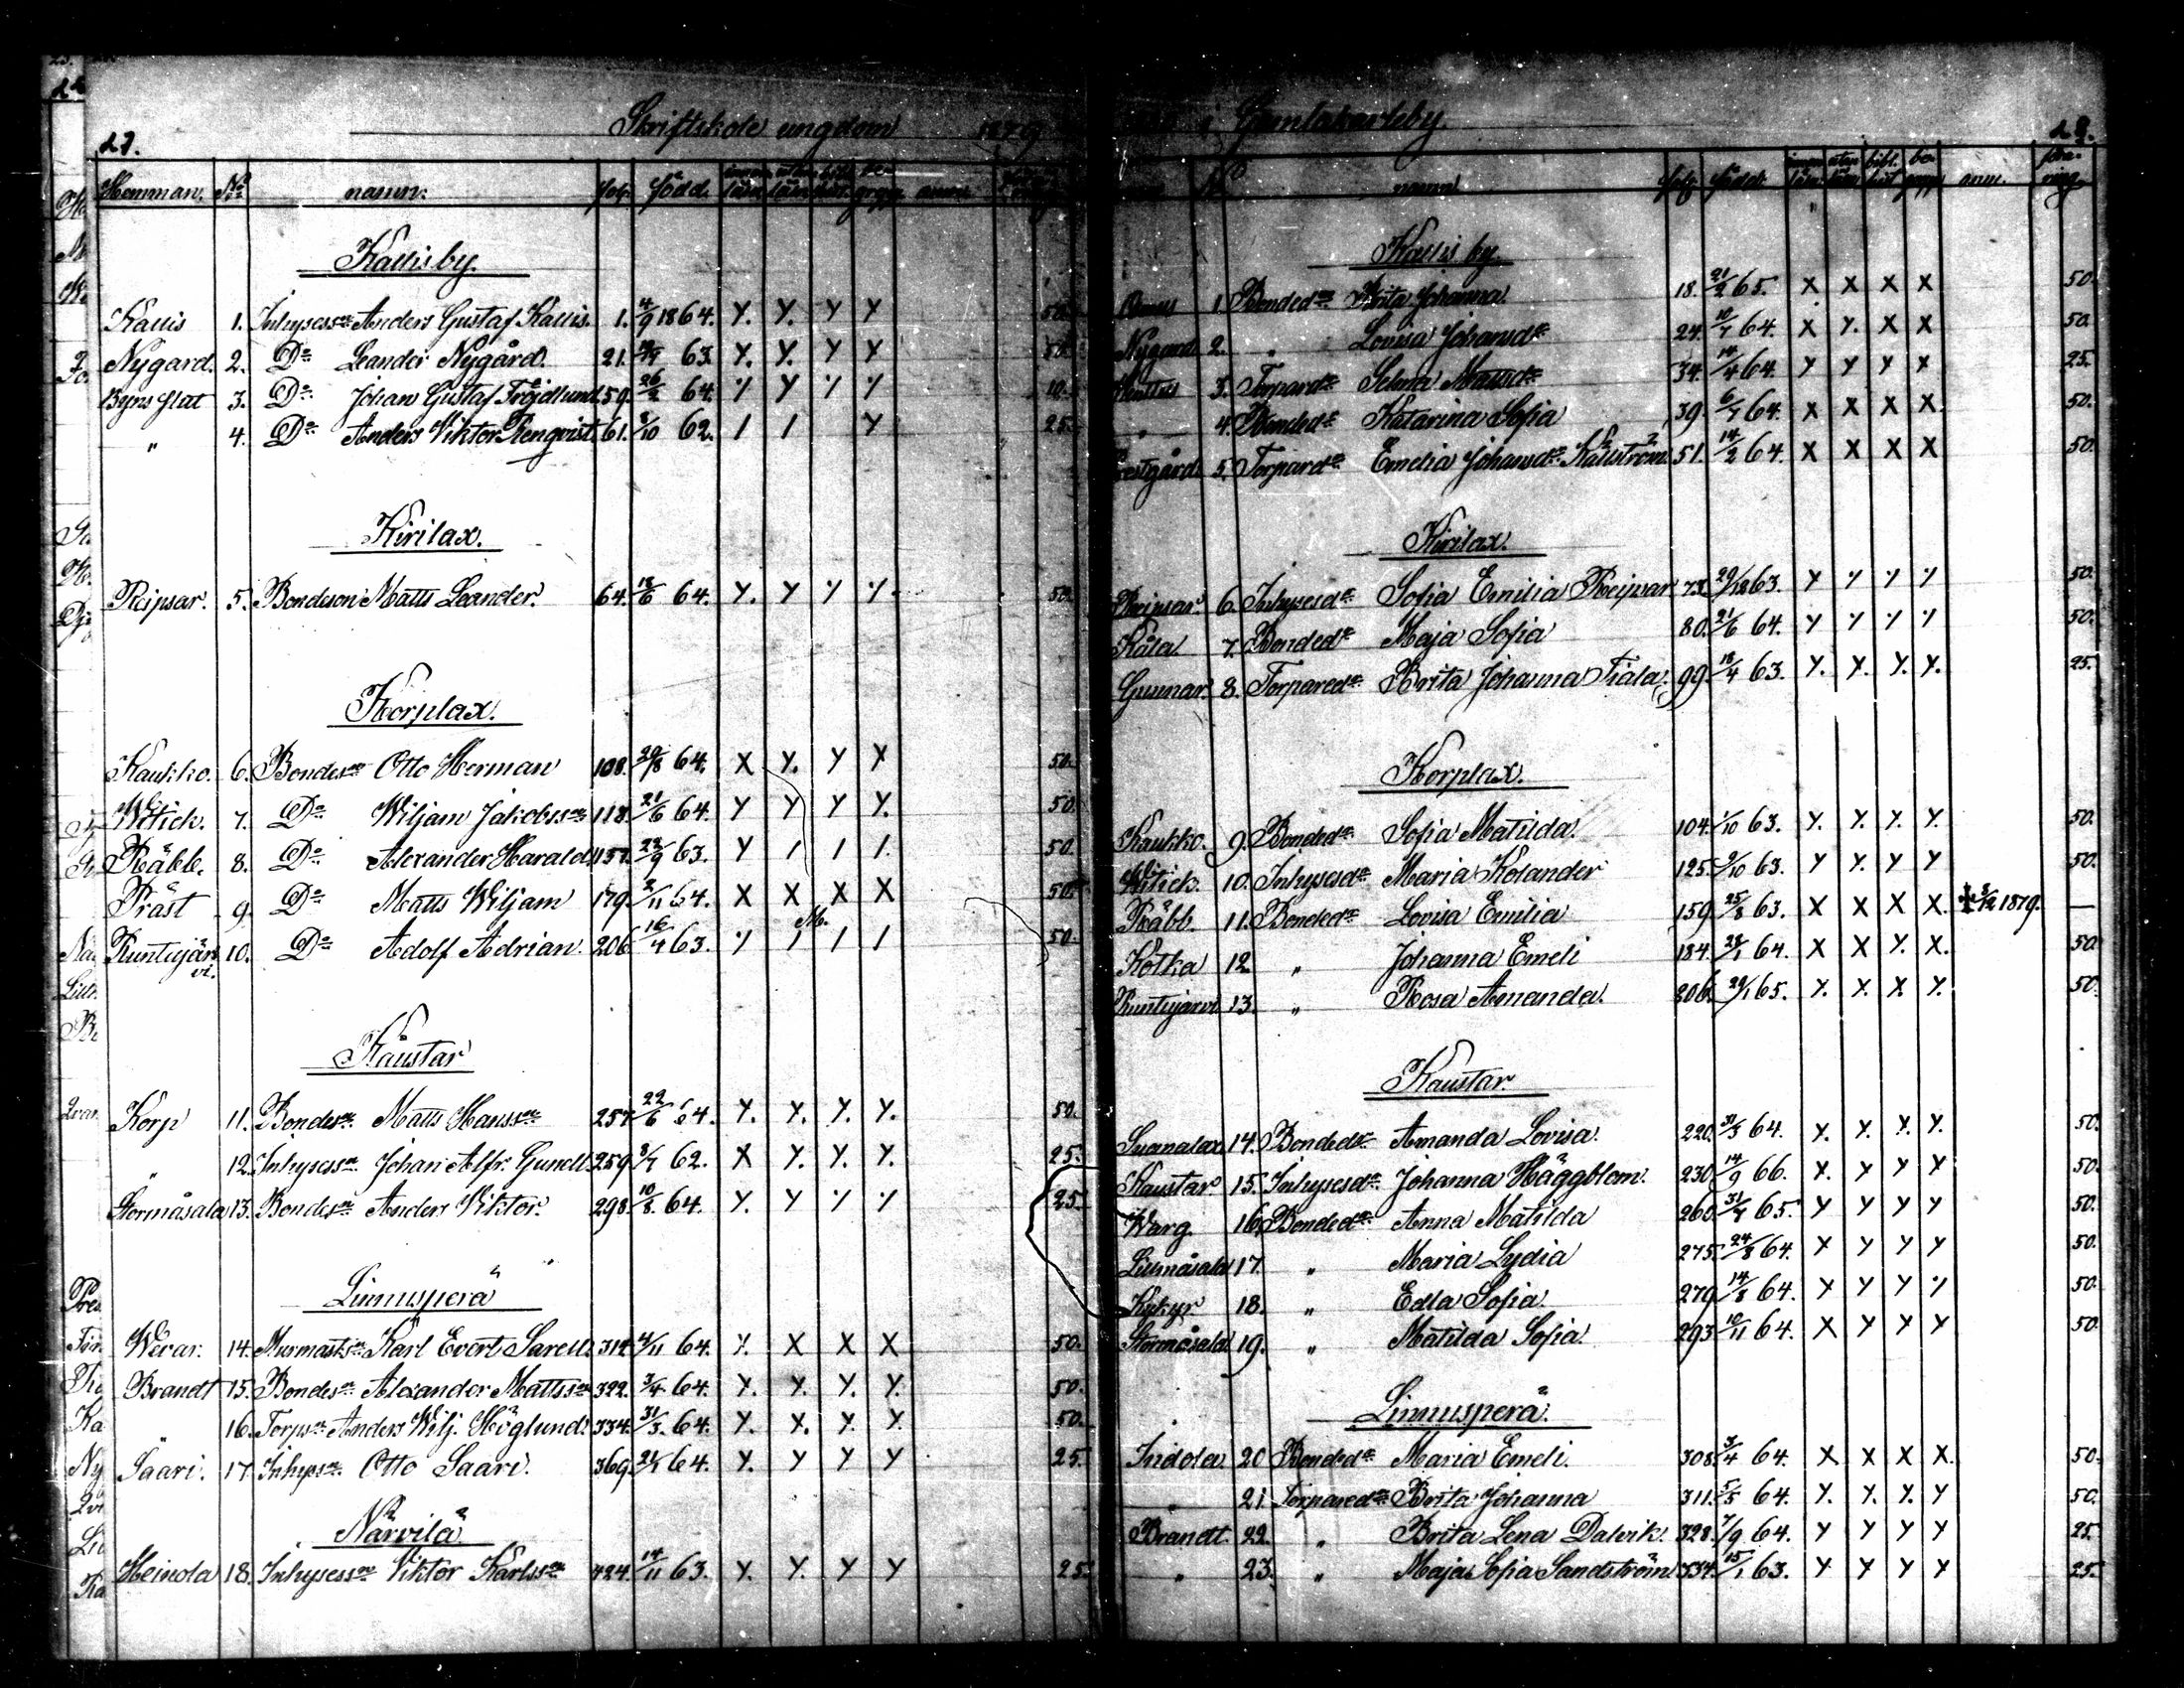 27.
Skriftskole ungdom 1879
Hemman. No namn. pag. född. innan läsn. utan läsn. bibl. hist. be- grepp. anm.
Kallisby.
Kallis 1. Inhysesson Anders Gustaf Kallis. 1. 4/9 1864. Y. Y. Y Y 50.
Nygård. 2. Do Leander Nygård. 21. 63. Y. Y. Y Y 50.
Byns flut 3. Do Johan Gustaf Fröjdlund 59. 26/2 64. Y Y Y Y 10.
" 4. Do Anders Viktor Renqvist 61. 8/10 62. / / Y 25.
Kirilax.
Reipsar. 5. Bondeson Matts Leander. 64. 18/6 64. Y. Y Y Y. 50.
Korplax.
Kaukko. 6. Bondeson Otto Herman 108. 29/8 64. X Y. Y X 50.
Witick. 7. Do Wiljam Jakobsson 118. 21/6 64. Y Y Y Y. 50.
Räbb. 8. Do Alexander Harald. 157. 22/9 63. Y / / /. 50.
Präst 9. Do Matts Wiljam 179. 2/11 64. X X X X 50.
M.
Runtujärvi. 10. Do Adolf Adrian. 206. 16/4 63. Y / / / 50.
Kaustar
Korp 11. Bondeson Matts Hansson 257. 22/6 64. Y. Y. Y. Y. 50.
" 12. Inhysesson Johan Alfr. Gunell. 259. 8/7 62. X Y. Y. Y. 25.
Stormåsala 13. Bondeson Anders Viktor. 298. 10/8 64. Y. Y Y Y 25.
Linnusperä
Werar. 14. Murmästson Karl Evert Sarell. 314. 4/11 64. Y. X X X 50.
Brandt 15. Bondeson Alexander Mattsson 322. 3/4 64. Y. Y. Y. Y. 50.
16. Torpson Anders Wilj. Höglund. 334. 31/3. 64. Y. X. Y. Y. 50.
Saari. 17. Inhyson Otto Saari. 369. 64. Y. Y Y Y 25.
Närvilä
Heinola 18. Inhysesson Viktor Karlsson 424. 14/11 63. Y. Y. Y Y 25.
i Gamlakarleby. 28.
No namn pag. född. innan läsn. utan läsn. bibl. hist. be- grepp anm. föra- ring.
Kallis by.
1. Bondedr Brita Johanna. 18. 21/2 65. X X X X 50.
Nygård 2. " Lovisa Johansdr 24. 10/7 64. X Y. X X 50.
3. Torpardr Selma Mattsdr 34. 14/4 64. Y Y Y X 25.
" 4. Bondedr Katarina Sofia 39. 6/7 64. X X X X. 50.
Prestgård. 5. Torpardr Emelia Johansdr Källström. 51. 14/2 64. X X X X 50.
Kirilax.
Reipsar. 6. Inhysesdr Sofia Emilia Reipsar 73. 63. Y Y Y Y 50.
Kåla. 7. Bondedr Maja Sofia 80. 21/6 64. Y Y Y Y 50.
Gunnar. 8. Torparedr Brita Johanna Fiala. 99. 18/4 63. Y. Y. Y. Y. 25.
Korplax.
Kaukko. 9. Bondedr Sofia Matilda. 104. 1/10 63. Y. Y. Y. Y. 50.
Witick. 10. Inhysesdr Maria Kolander 125. 9/10 63. Y Y. Y Y 50.
Räbb. 11. Bondedr Lovisa Emilia 159. 25/8 63. X X X X. † 3/12 1879. —
Kotka 12. " Johanna Emeli 184. 28/1 64. X X Y. X. 50.
Runtujärvi 13. " Rosa Amanda. 206. 29/1 65. Y. Y. X. Y. 50.
Kaustar.
Suonalax 14. Bondedr Amanda Lovisa. 220. 31/5 64. Y. Y. Y. Y. 50.
Kaustar. 15. Inhysesdr Johanna Häggblom. 230. 14/9 66. Y. Y Y Y 50.
Warg. 16. Bondedr Anna Matilda 260. 31/7 65. Y Y Y Y 50.
Lillmåsala 17. " Maria Lydia 275. 24/8 64. Y Y Y Y 50.
Kykyr. 18. " Edla Sofia. 279. 14/8 64. Y Y Y Y 50.
Stormåsala 19. " Matilda Sofia. 293. 10/11 64. X Y Y Y 50.
Linnusperä.
Indola. 20 Bondedr Maria Emeli. 308. 3/4 64. X X X X. 50.
" 21. Torparedr Brita Johanna 311. 5/5 64. Y. Y. Y. Y 50.
Brandt. 22. " Brita Lena Dalvik. 328. 7/9 64. Y Y Y Y 25.
" 23. " Maja Sofia Sandström 334. 15/1 63. Y Y Y Y 25.